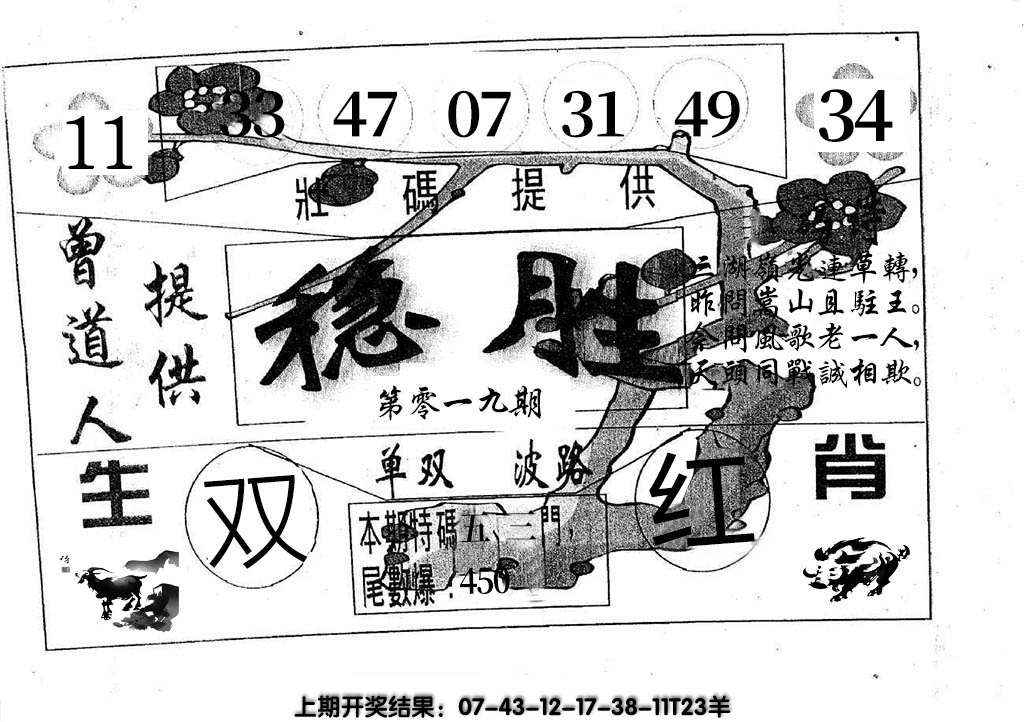 11 33 47 07 31 49 34
壯碼提供
曾道人
提供
稳胜
第零一九期
三湖嶺老連草轉，
昨問嵩山且駐王。
奈問風歌老一人，
天頭同戰誠相欺。
单双 波路
生肖
双
红
本期特碼五、三門，
尾數爆：450
上期开奖结果：07-43-12-17-38-11T23羊